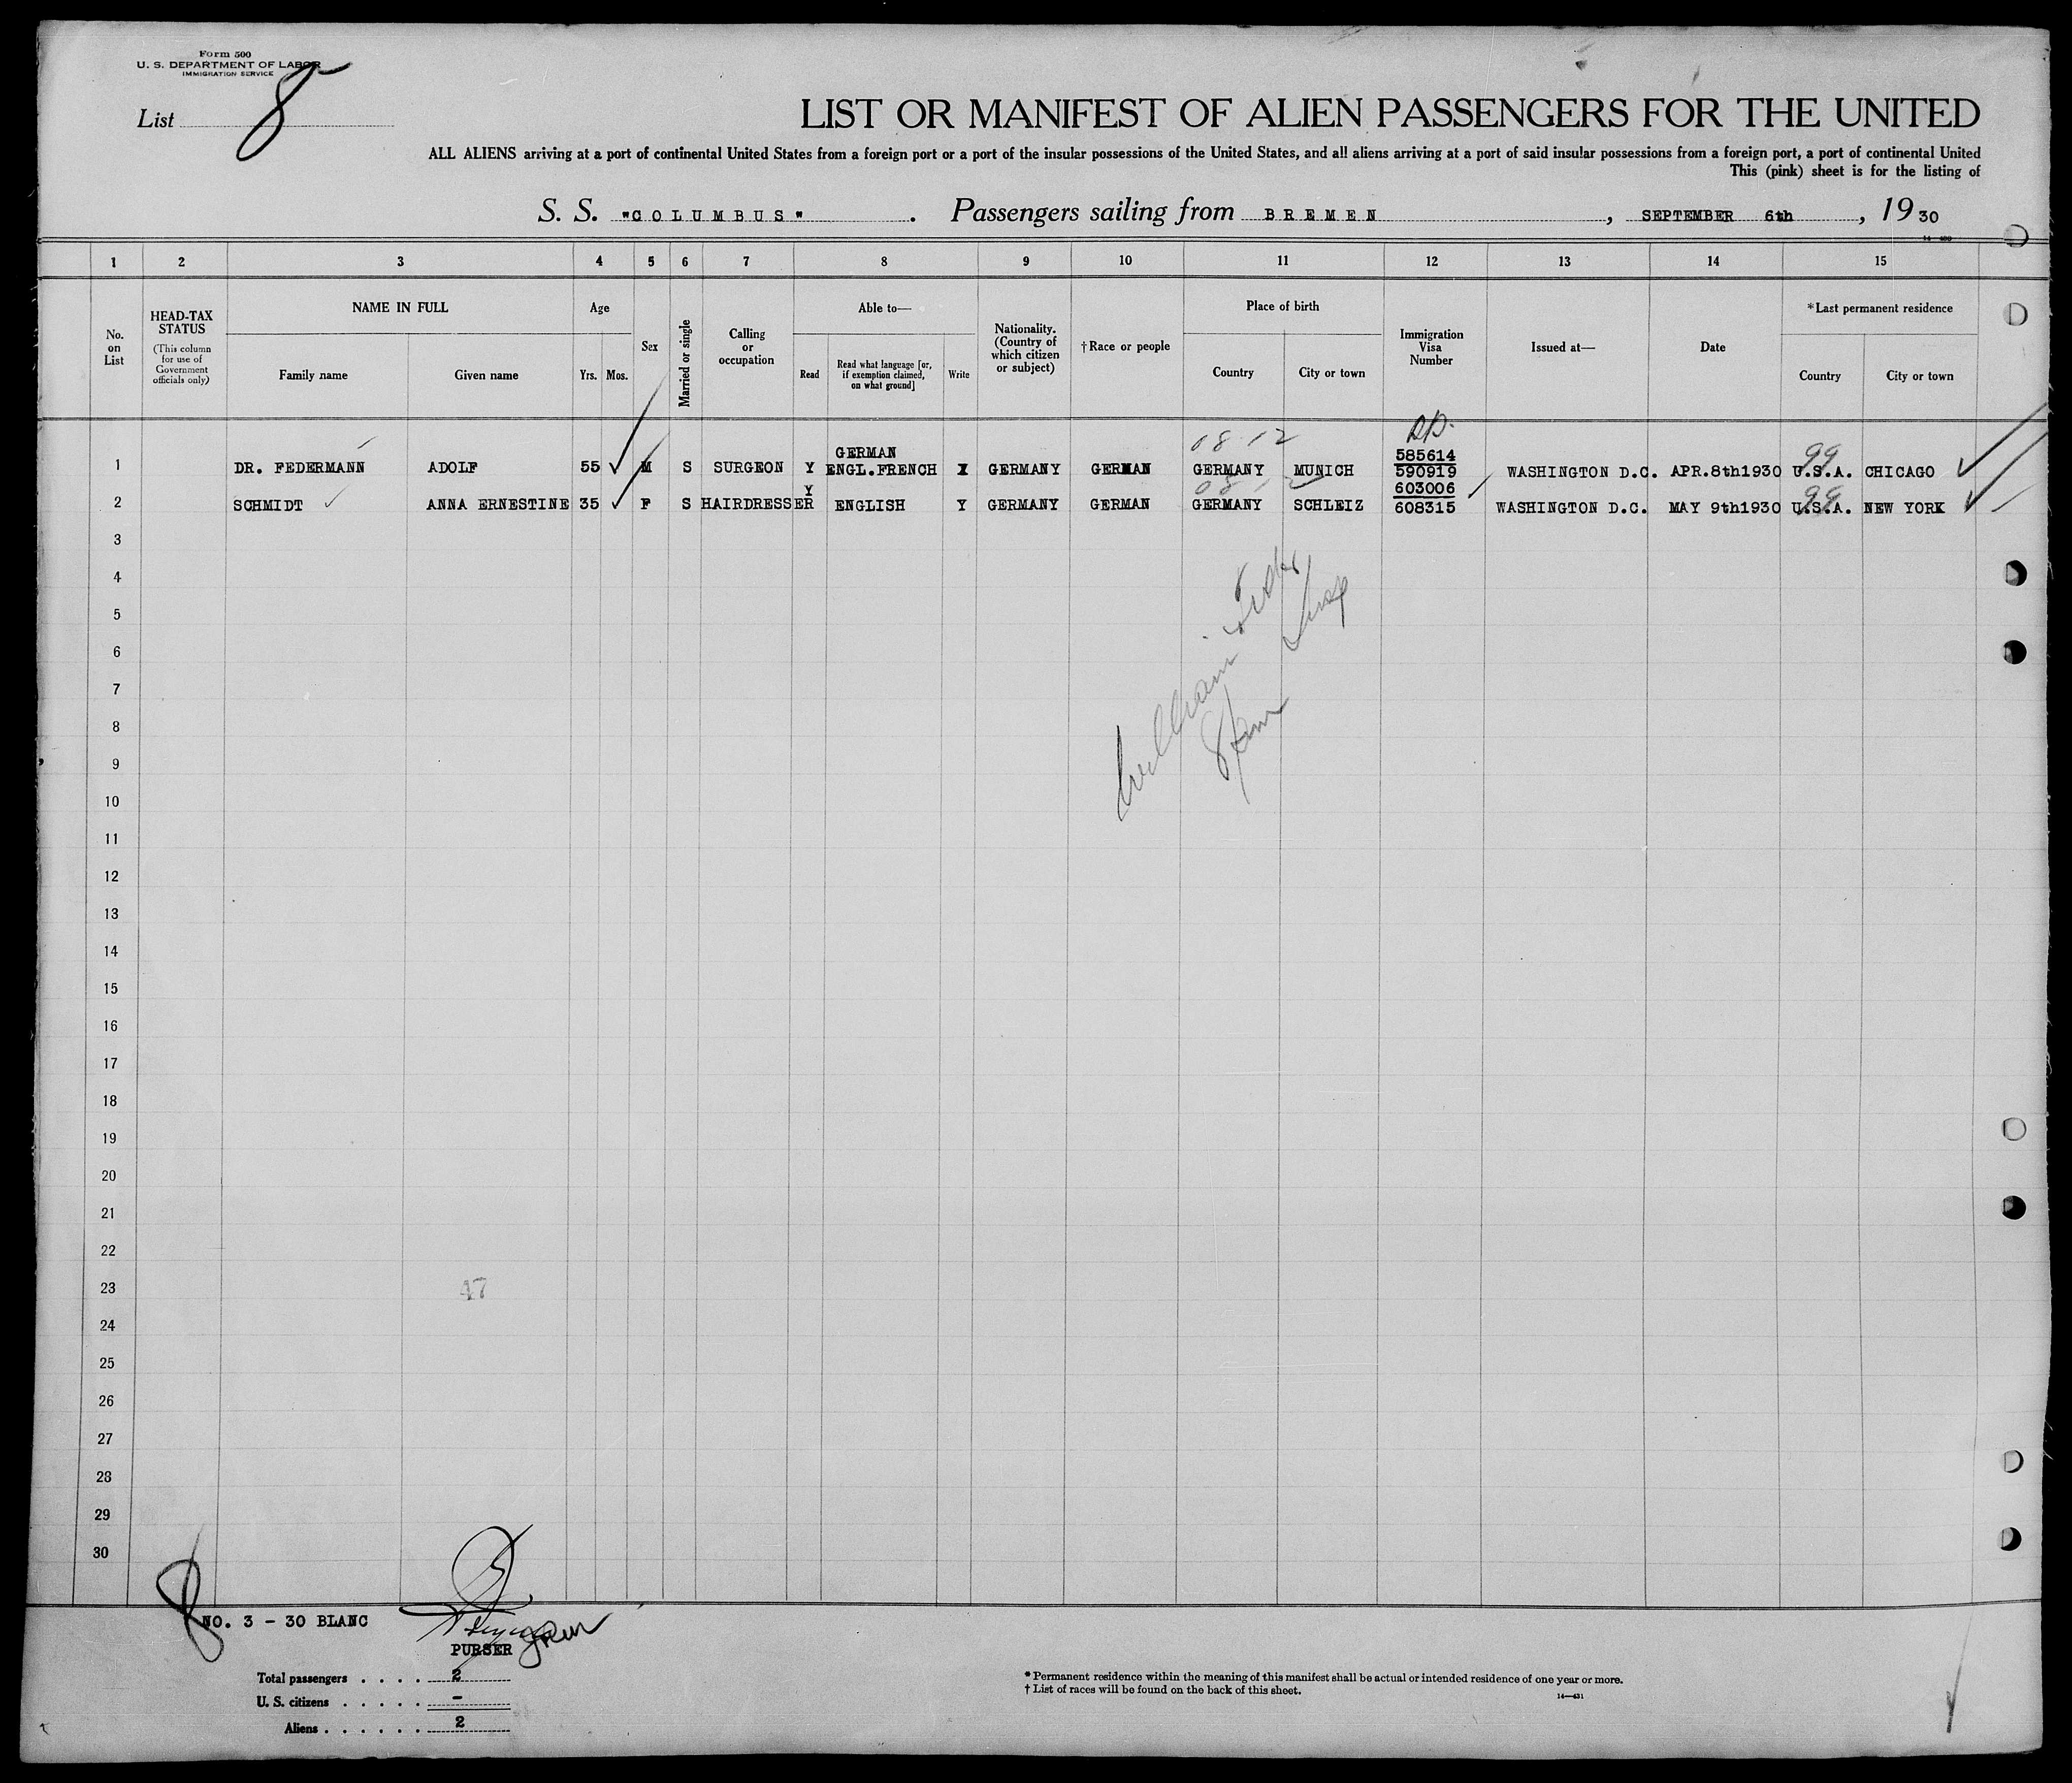 Form 500
U. S. DEPARTMENT OF LABOR
IMMIGRATION SERVICE
List 8
LIST OR MANIFEST OF ALIEN PASSENGERS FOR THE UNITED
ALL ALIENS arriving at a port of continental United States from a foreign port or a port of the insular possessions of the United States, and all aliens arriving at a port of said insular possessions from a foreign port, a port of continental United
This (pink) sheet is for the listing of
S. S. "COLUMBUS". Passengers sailing from BREMEN, SEPTEMBER 6th, 19 30
1 2 3 4 5 6 7 8 9 10 11 12 13 14 15
No. on List
HEAD-TAX STATUS
(This column for use of Government officials only)
NAME IN FULL
Family name
Given name
Age
Yrs. Mos.
Sex
Married or single
Calling or occupation
Able to—
Read
Read what language [or, if exemption claimed, on what ground]
Write
Nationality. (Country of which citizen or subject)
†Race or people
Place of birth
Country
City or town
Immigration Visa Number
Issued at—
Date
*Last permanent residence
Country
City or town
08 12
585614
1 DR. FEDERMANN ADOLF 55 M S SURGEON Y GERMAN ENGL.FRENCH Y GERMANY GERMAN GERMANY MUNICH 590919 WASHINGTON D.C. APR.8th1930 U.S.A. CHICAGO
99
603006
2 SCHMIDT ANNA ERNESTINE 35 F S HAIRDRESSER Y ENGLISH Y GERMANY GERMAN GERMANY SCHLEIZ 608315 WASHINGTON D.C. MAY 9th1930 U.S.A. NEW YORK
99
3
4
5
6
7
8
9
10
11
12
13
14
15
16
17
18
19
20
21
22
23
24
25
26
27
28
29
30
William
47
8
NO. 3 - 30 BLANC
PURSER
Total passengers . . . . 2
U. S. citizens . . . . . -
Aliens . . . . . . 2
* Permanent residence within the meaning of this manifest shall be actual or intended residence of one year or more.
† List of races will be found on the back of this sheet.
14—431